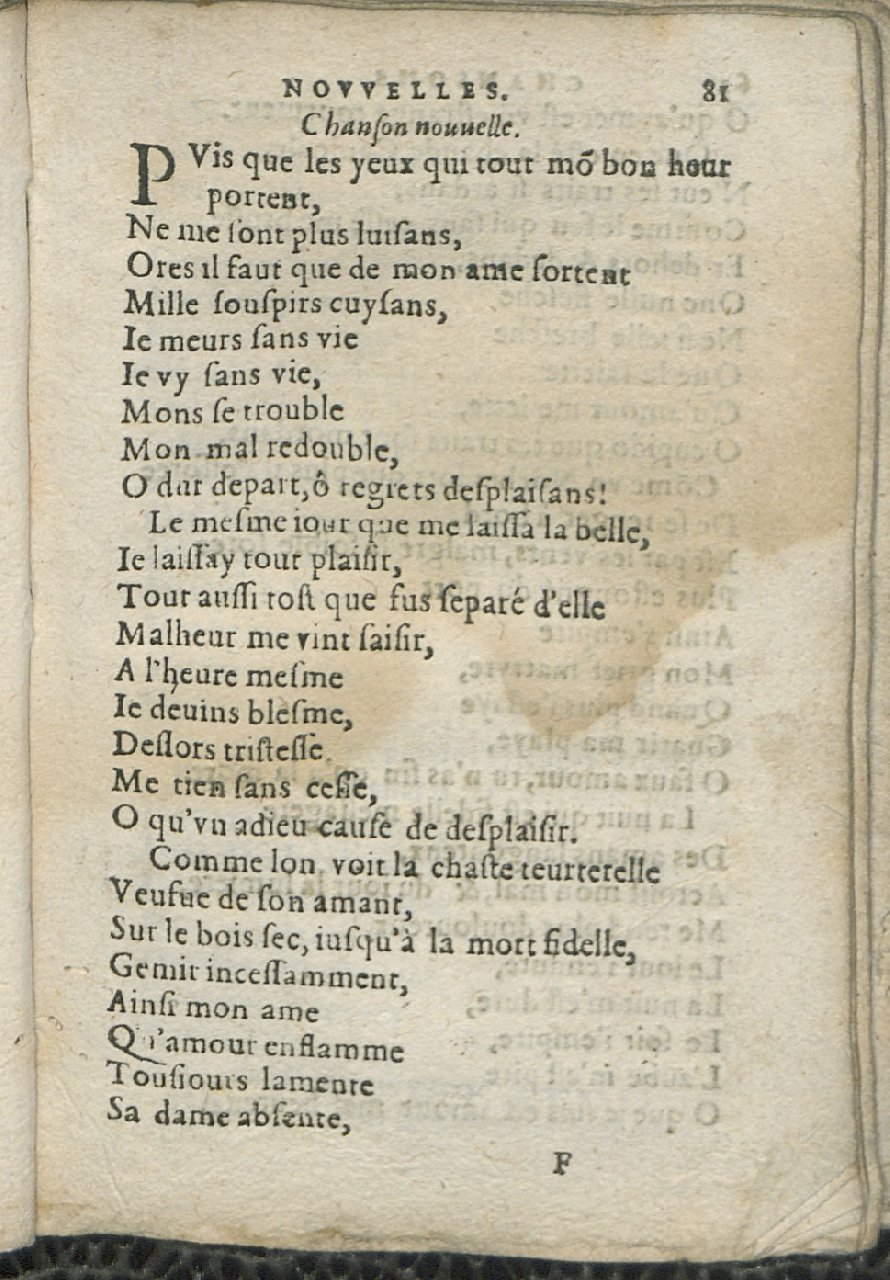 NOVVELLES. 81
Chanſon nouuelle.
PVis que les yeux qui tout mõ bon heur
portent,
Ne me ſont plus luiſans,
Ores il faut que de mon ame ſortent
Mille ſouſpirs cuyſans,
Ie meurs ſans vie
Ie vy ſans vie,
Mons ſe trouble
Mon mal redouble,
O dur depart, ô regrets deſplaiſans!
Le meſme iour que me laiſſa la belle,
Ie laiſſay tout plaiſir,
Tout auſſi toſt que fus ſeparé d'elle
Malheur me vint ſaiſir,
A l'heure meſme
Ie deuins bleſme,
Deſlors triſteſſe
Me tien ſans ceſſe,
O qu'vn adieu cauſe de deſplaiſir.
Comme lon voit la chaſte teurterelle
Veufue de ſon amant,
Sur le bois ſec, iuſqu'à la mort fidelle,
Gemir inceſſamment,
Ainſi mon ame
Qu'amour enflamme
Touſiours lamente
Sa dame abſente,
F